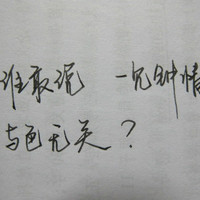 谁敢说 一见钟情
与色无关？